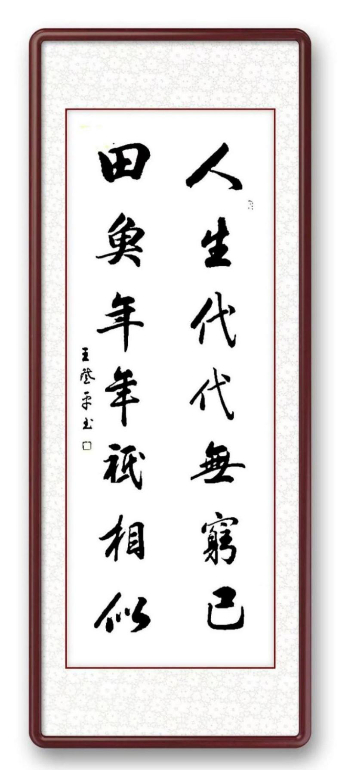 人生代代無窮已
田奐年年祇相似
王登平书